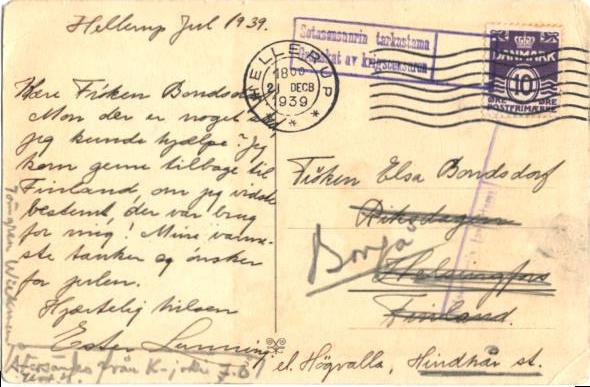 Hellerup Jul 1939.
Sotasensuurin tarkastama
Granskat av krigscensuren
HELLERUP
1800
21 DECB
1939
DANMARK
10
ØRE ØRE
POSTFRIMÆRKE
Kære Frøken Bondsdorf
Mon der er noget
jeg kunde hjælpe? Jeg
kom gerne tilbage til
Finland, om jeg vidste
bestemt, der var brug
for mig! Mine varme-
ste tanker og ønsker
for julen.
Hjærtelig hilsen
Ester Lanning
Frøken Elsa Bondsdorf
Riksdagen
Helsingfors
Finland.
Borgå
el. Högvalla, Hindhår st.
Återsändes från K-joki